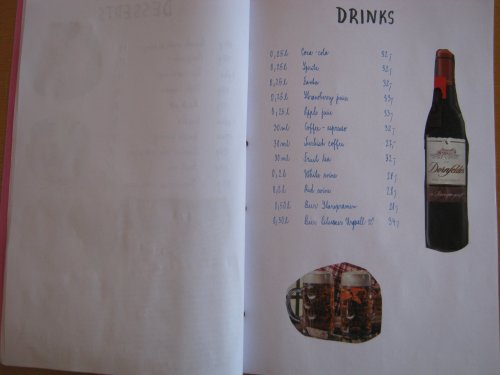 DESSERTS
DRINKS
0,25l Coca-cola 32,-
0,25l Sprite 32,-
0,25l Fanta 32,-
0,25l Strawberry juice 33,-
0,25l Apple juice 33,-
30ml Coffee-espresso 32,-
30ml Turkish coffee 25,-
30ml Fruit tea 32,-
0,2l White wine 28,-
0,2l Red wine 28,-
0,50l Beer 28,-
0,50l Beer 34,-
Dornfelder